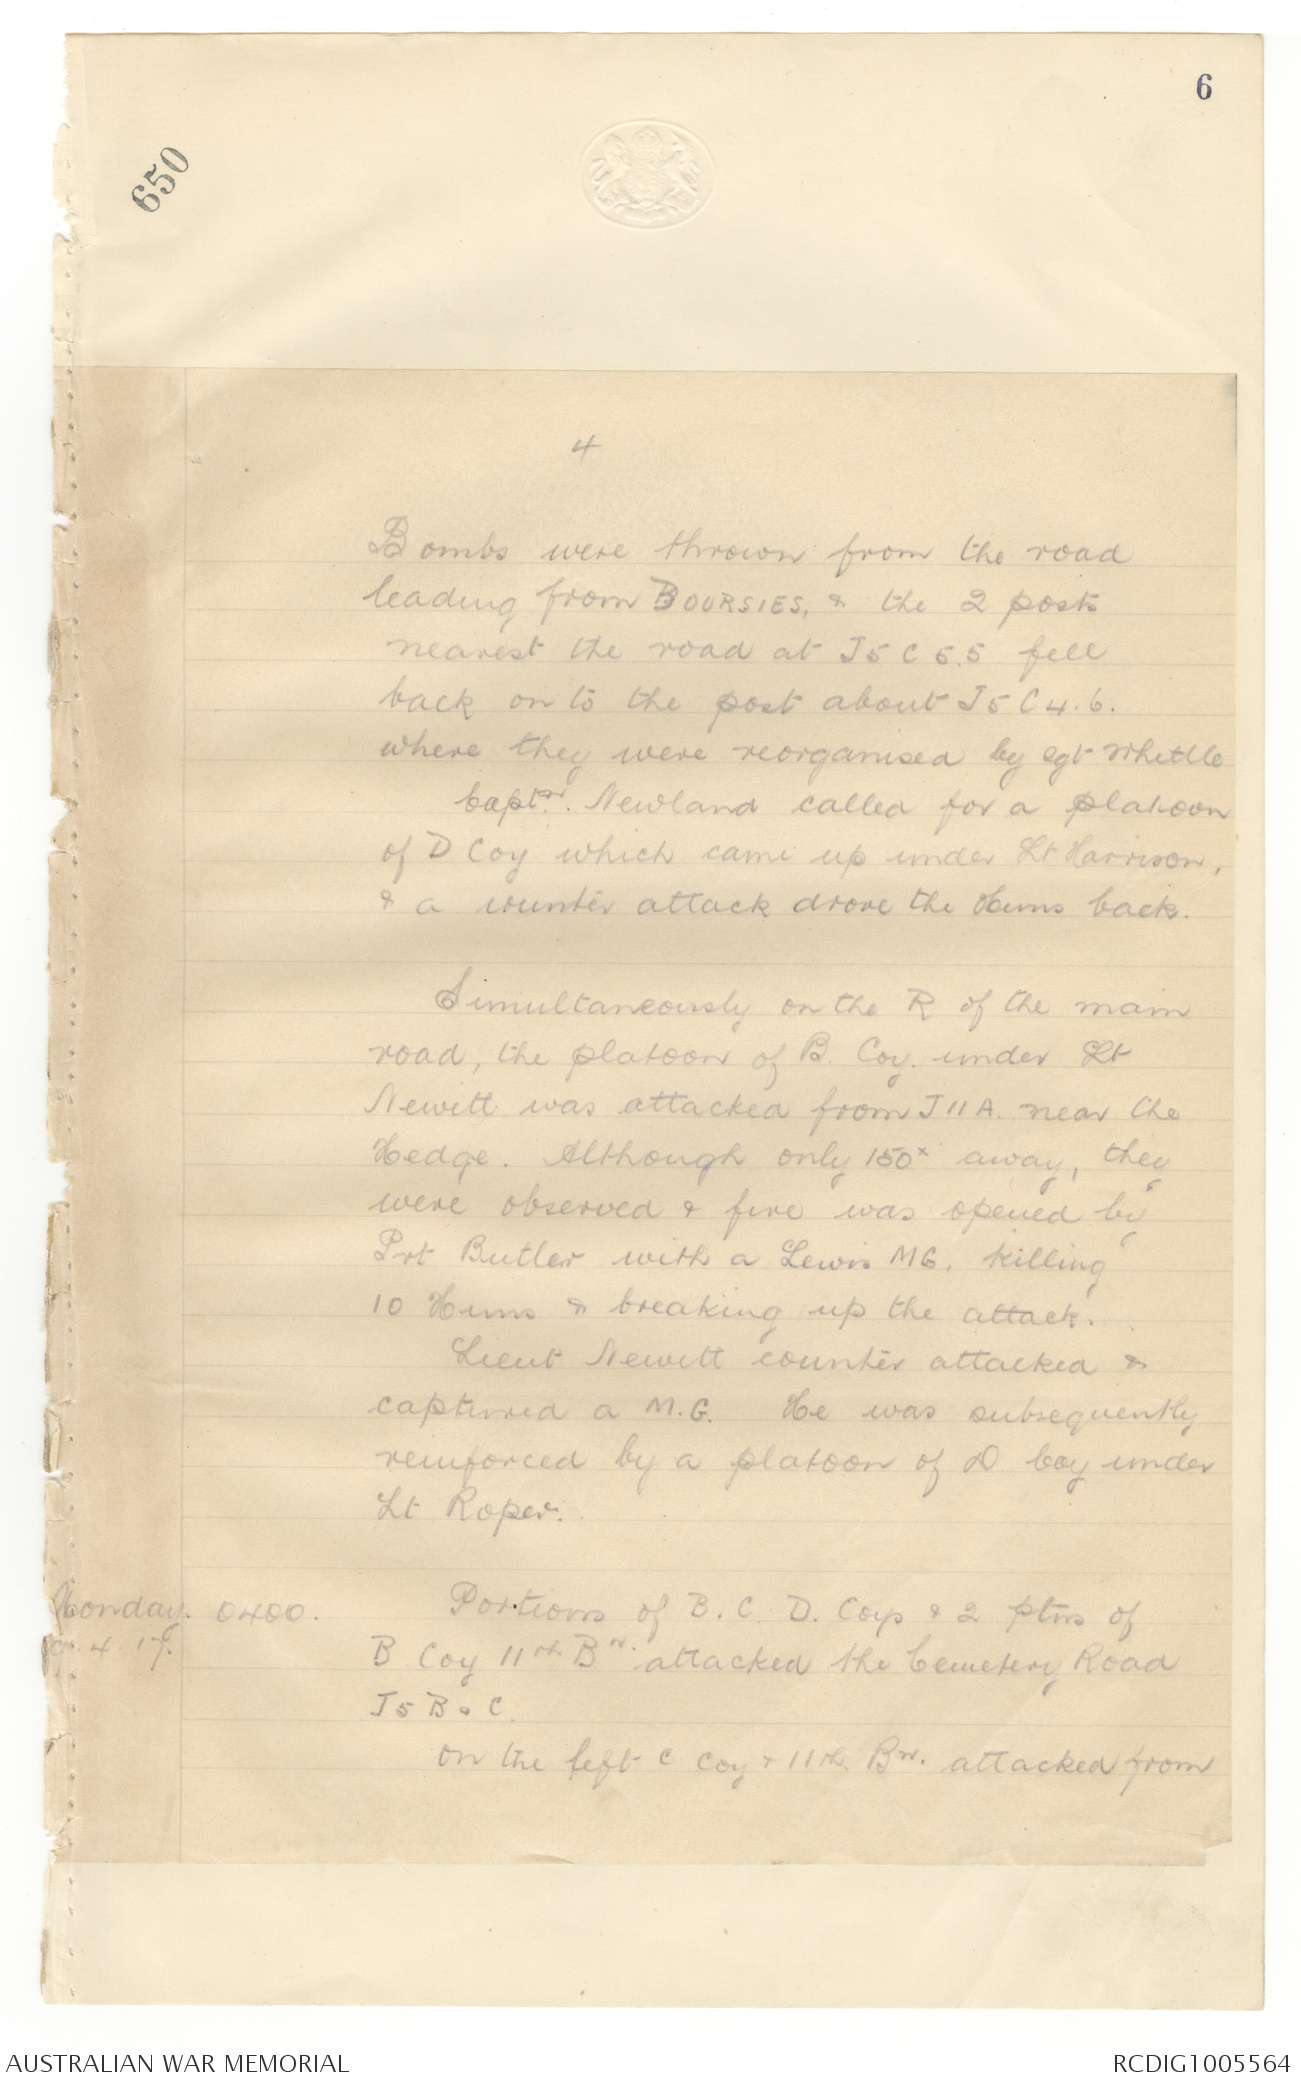 6
650
4
Bombs were thrown from the road
leading from BOURSIES, & the 2 posts
nearest the road at J5 C 5.5 fell
back on to the post about J5 C 4.6.
where they were reorganised by Sgt Whittle
Captn. Newland called for a platoon
of D Coy which came up under Lt Harrison,
& a counter attack drove the Huns back.
Simultaneously on the R of the main
road, the platoon of B. Coy. under Lt
Newitt was attacked from J 11 A. near the
Hedge. Although only 150x away, they
were observed & fire was opened by
Prt Butler with a Lewis MG, killing
10 Huns & breaking up the attack.
Lieut Newitt counter attacked &
captured a M.G. He was subsequently
reinforced by a platoon of D Coy under
Lt Roper.
Monday. 0400. Portions of B. C. D. Coys & 2 ptns of
4. 17. B Coy 11th Bn. attacked the Cemetery Road
J5 B & C.
On the left C Coy & 11th Bn. attacked from
AUSTRALIAN WAR MEMORIAL
RCDIG1005564